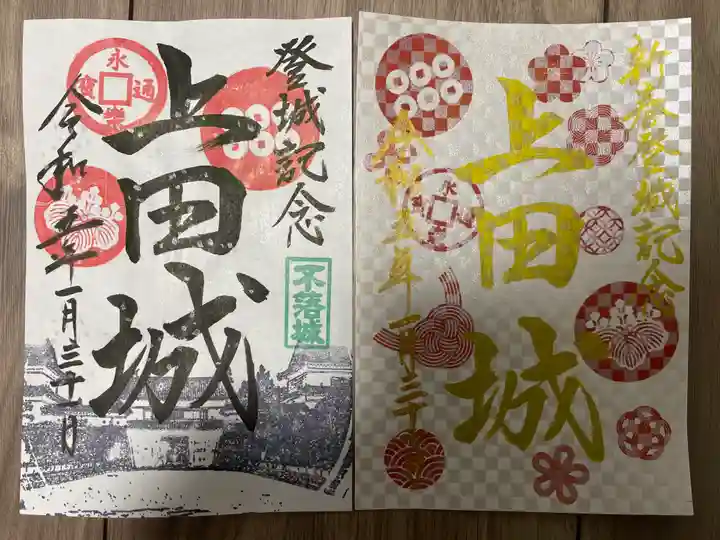 登城記念
上田城
令和五年一月三十一日
永樂通寳
不落城
新春登城記念
上田城
令和五年一月三十
永